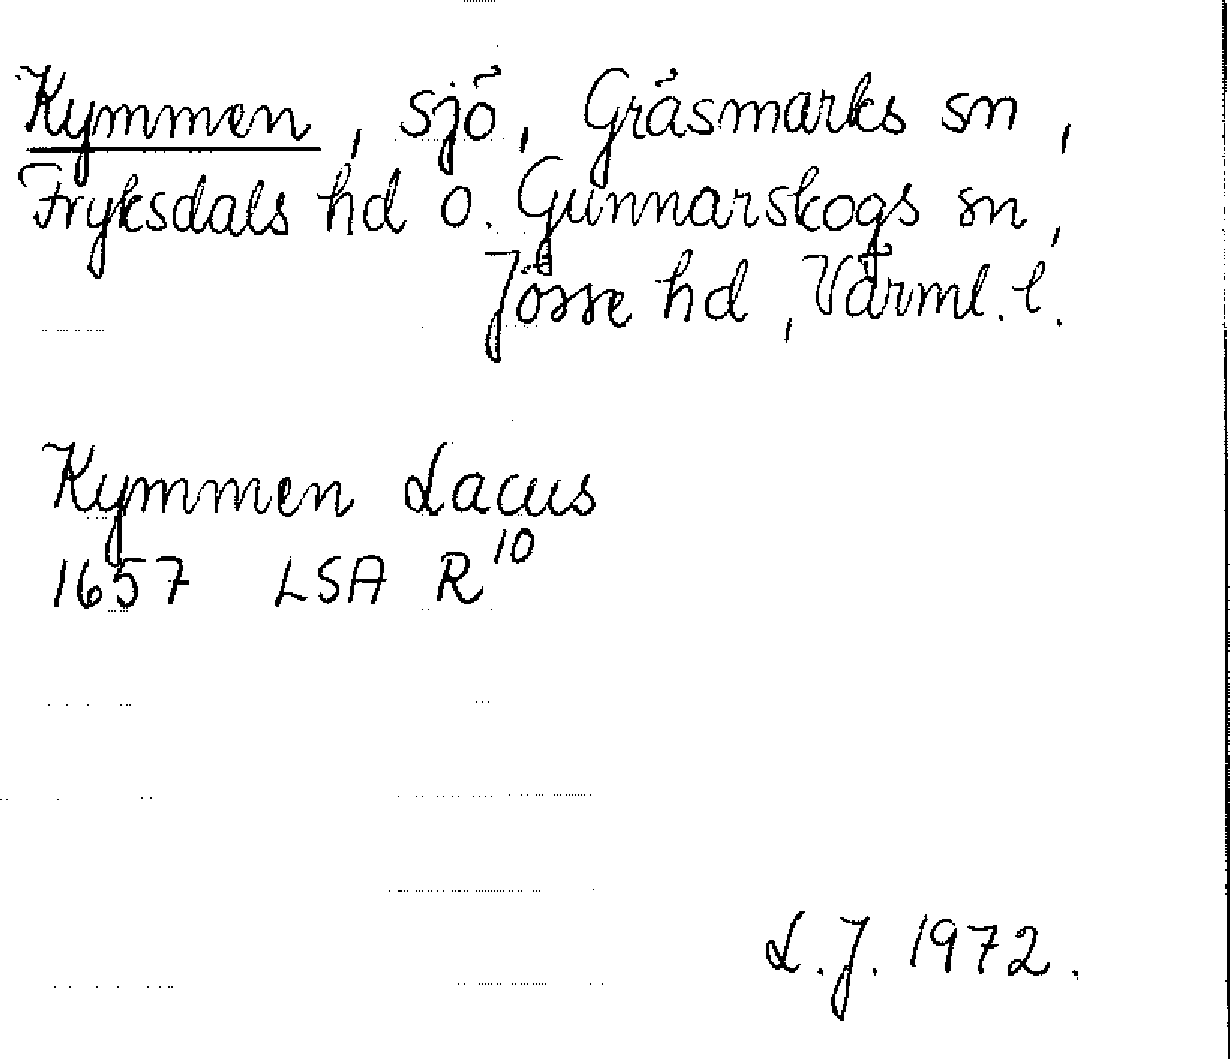 Kymmen, sjö, Gräsmarks sn,
Fryksdals hd o. Gunnarskogs sn,
Jösse hd, Värml. l.
Kymmen Lacus
1657 LSA R¹⁰
L.J. 1972.